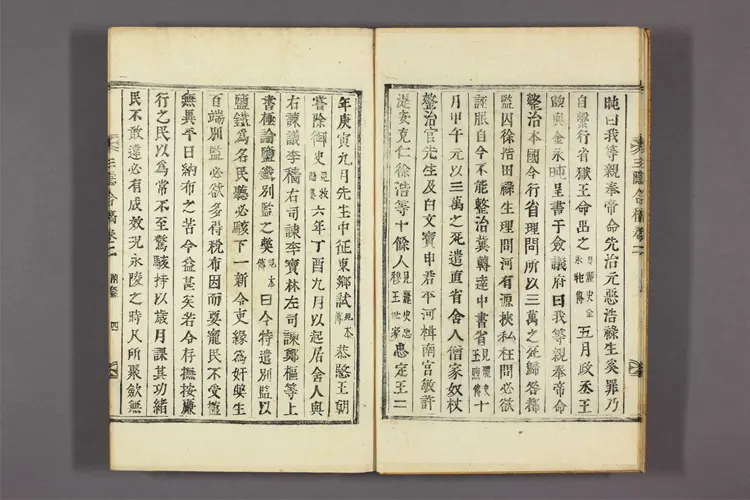 旽曰我等親奉帝命先治元惡浩祿生奚罪乃
自繫行省獄王命出之見麗史金永旽傳五月政丞王
煦與金永旽呈書于僉議府曰我等親奉帝命
整治本國今行省理問所以三萬之死歸咎都
監囚徐浩田祿生理問河有源挾私枉問必欲
誣服自今不能整治冀轉達中書省見麗史王煦傳十
月甲午元以三萬之死遣直省舍人僧家奴杖
整治官先生及白文寶申君平河楫南宮敏許
湜安克仁徐浩等十餘人見麗史忠穆王世家忠定王二
年庚寅九月先生中征東鄉試見本傳恭愍王朝
嘗除御史六年丁酉九月以起居舍人與
右諫議李穡右司諫李寶林左司諫鄭樞等上
書極論鹽鐵別監之弊見本傳曰今特遣別監以
鹽鐵爲名民聽必駭下一新令吏緣爲奸弊生
百端別監必欲多得稅布因而要寵民不受鹽
無異平日納布之苦今益甚矣若令存撫按廉
行之民以爲常不至驚駭持以歲月課其功緖
民不敢違必有成效況永陵之時凡所聚斂無
三隱合稿卷二 附錄 四